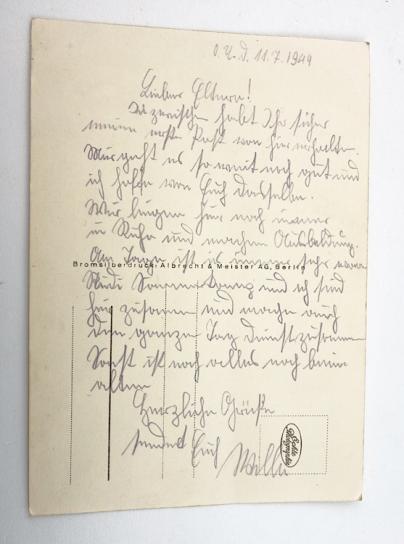 O.U.d. 11.7.1944
Liebe Eltern!
Inzwischen habt Ihr sicher
meine erste Post von hier erhalten.
Mir geht es soweit noch gut und
ich hoffe von Euch dasselbe.
Wir liegen hier noch immer
in Ruhe und machen Ausbildung.
Am Tage ist es immer sehr warm
Bromsilberdruck Albrecht & Meister AG, Berlin
Rudi und ich sind
hier zusammen und machen auch
den ganzen Tag Dienst zusammen
Sonst ist noch alles noch beim
alten
Herzliche Grüße
sendet Euch Willi
Echte Photographie